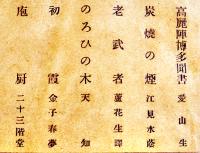 高麗陣博多聞書 愛山生
炭燒の煙 江見水蔭
老武者 蘆花生譯
のろひの木 天知
初霞 金子春夢
庖厨 二十三階堂